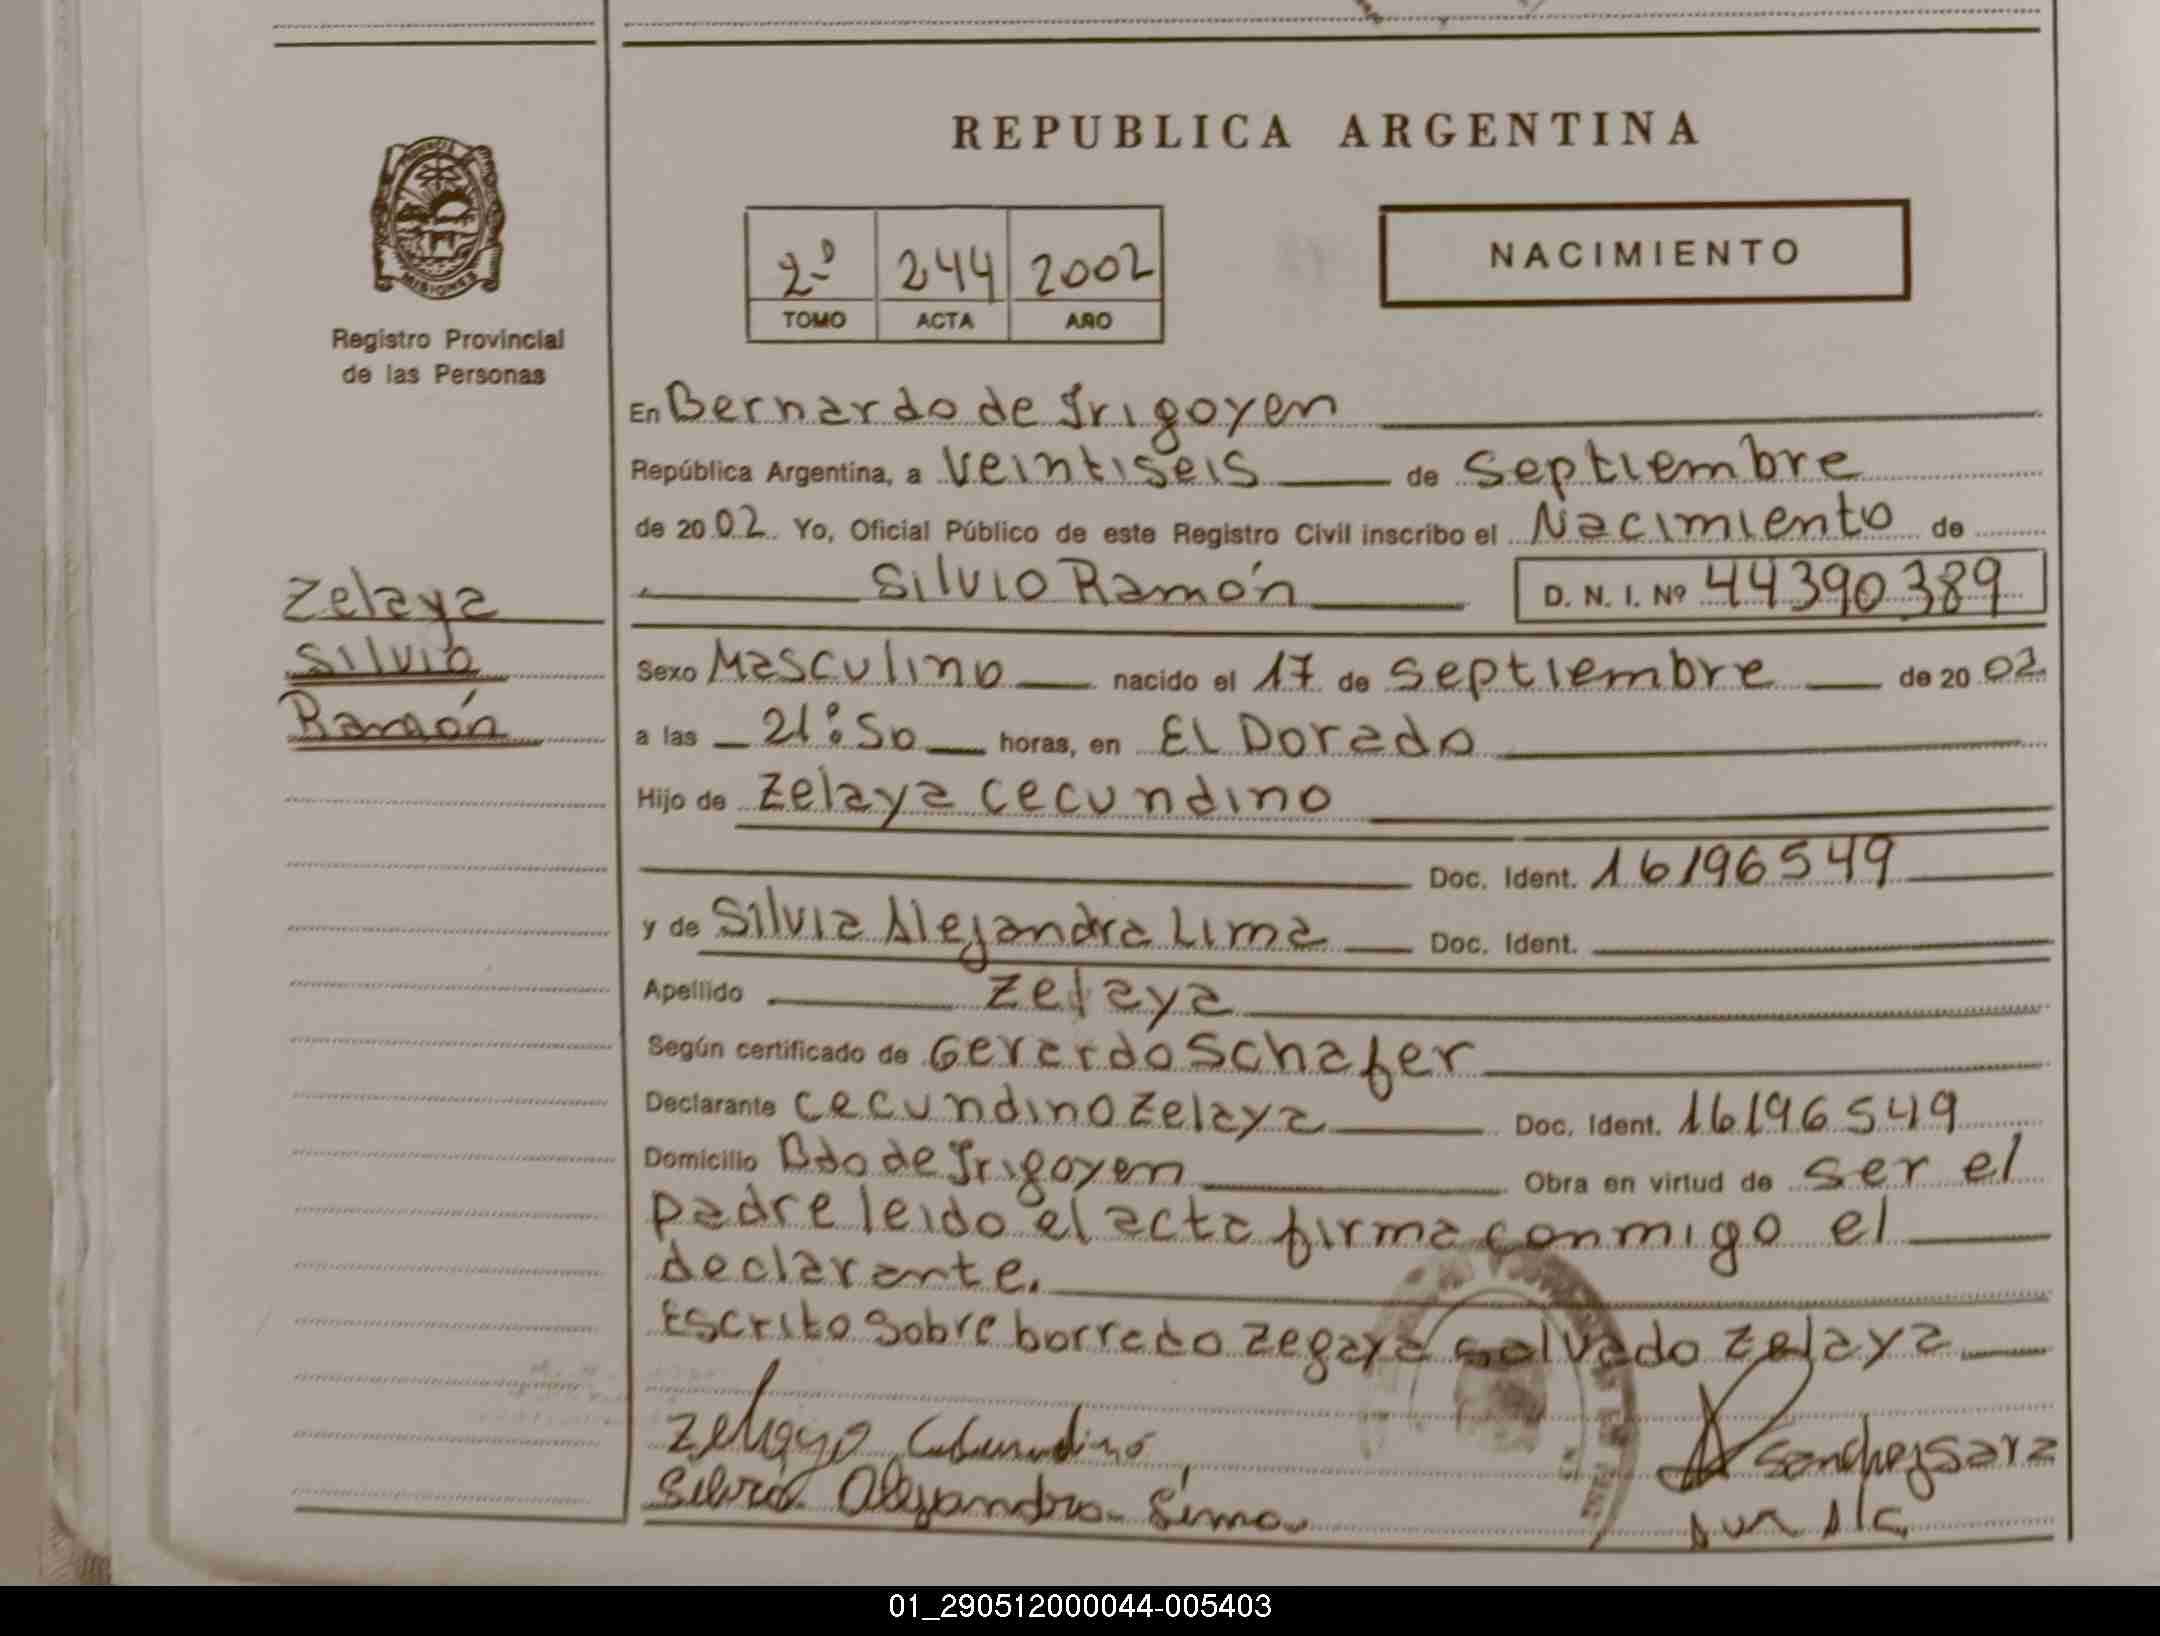 REPUBLICA ARGENTINA
PROVINCIA DE
MISIONES
Registro Provincial
de las Personas
2º 244 2002
TOMO ACTA AÑO
NACIMIENTO
En Bernardo de Irigoyen
República Argentina, a veintiseis de septiembre
de 2002 Yo, Oficial Público de este Registro Civil inscribo el Nacimiento de
Silvio Ramón D. N. I. Nº 44390389
Zelaya
Silvio
Ramón
Sexo Masculino nacido el 17 de septiembre de 2002
a las 21:50 horas, en El Dorado
Hijo de Zelaya Cecundino
Doc. Ident. 16196549
y de Silvia Alejandra Lima Doc. Ident.
Apellido Zelaya
Según certificado de Gerardo Schafer
Declarante Cecundino Zelaya Doc. Ident. 16196549
Domicilio Bdo de Irigoyen Obra en virtud de ser el
padre leido el acta firma conmigo el
declarante.
Escrito sobre borrado zegaya salvado zelaya
Zelaya
Silvia Alejandra Lima
Sanchez Sara
01_290512000044-005403